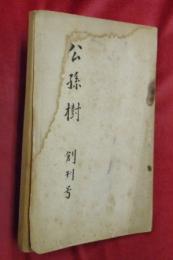 公孫樹
創刊号